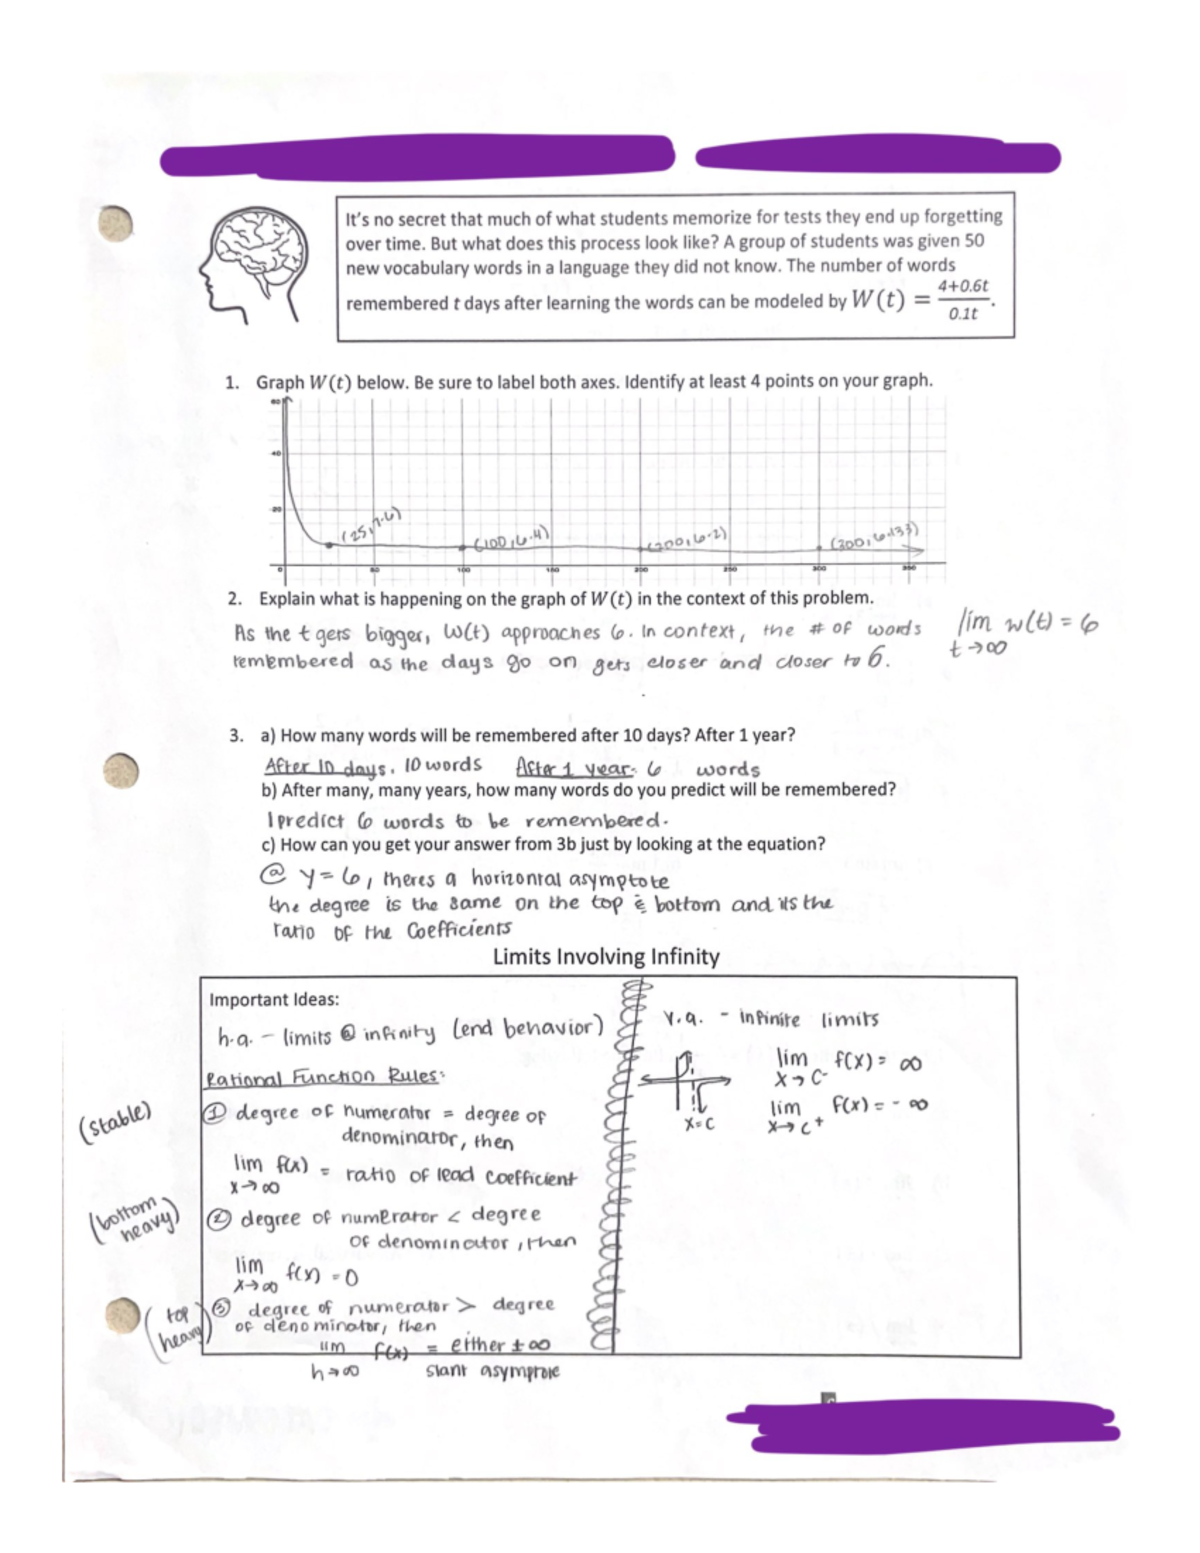 It's no secret that much of what students memorize for tests they end up forgetting
over time. But what does this process look like? A group of students was given 50
new vocabulary words in a language they did not know. The number of words
remembered t days after learning the words can be modeled by W(t) = (4+0.6t)/(0.1t).
1. Graph W(t) below. Be sure to label both axes. Identify at least 4 points on your graph.
60
40
20
(25,7.6)
(100,6.4)
(200,6.2)
(300,6.133)
0 50 100 150 200 250 300 350
2. Explain what is happening on the graph of W(t) in the context of this problem.
As the t gets bigger, W(t) approaches 6. In context, the # of words
remembered as the days go on gets closer and closer to 6.
lim w(t) = 6
t→∞
3. a) How many words will be remembered after 10 days? After 1 year?
After 10 days. 10 words After 1 year. 6 words
b) After many, many years, how many words do you predict will be remembered?
I predict 6 words to be remembered.
c) How can you get your answer from 3b just by looking at the equation?
@ y=6, theres a horizontal asymptote
the degree is the same on the top & bottom and its the
ratio of the coefficients
Limits Involving Infinity
Important Ideas:
h.a. - limits @ infinity (end behavior)
Rational Function Rules:
(stable)
① degree of numerator = degree of
denominator, then
lim f(x) = ratio of lead coefficient
x→∞
(bottom
heavy)
② degree of numerator < degree
of denominator, then
lim f(x) = 0
x→∞
(top
heavy)
③ degree of numerator > degree
of denominator, then
lim f(x) = either ±∞
h→∞ slant asymptote
v.a. - infinite limits
x=c
lim f(x) = ∞
x→c⁻
lim f(x) = -∞
x→c⁺